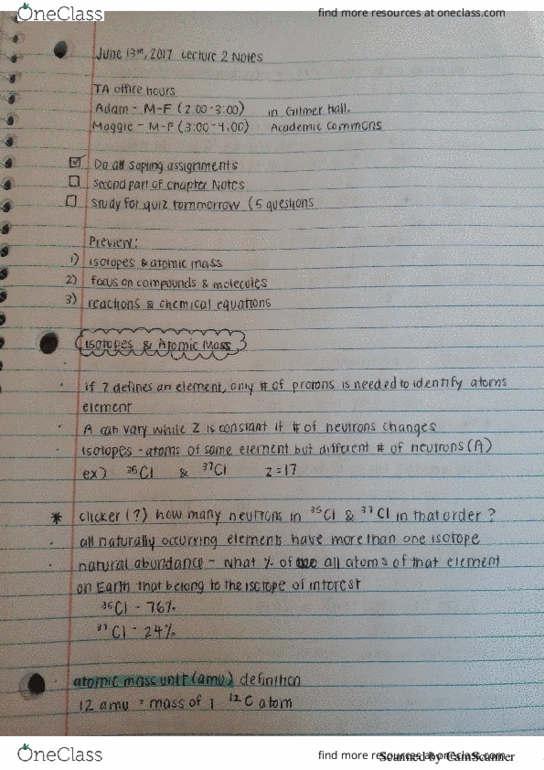 OneClass find more resources at oneclass.com
June 13th, 2017 Lecture 2 Notes
TA office hours
Adam - M-F (2:00-3:00) in Gilmer hall,
Maggie - M-F (3:00-4:00) Academic Commons
Do all sapling assignments
second part of chapter Notes
study for quiz tommorrow (5 questions
Preview:
1) isotopes & atomic mass
2) focus on compounds & molecules
3) reactions & chemical equations
Isotopes & Atomic Mass
· if Z defines an element, only # of protons is needed to identify atoms
element
· A can vary while Z is constant if # of neutrons changes
· isotopes - atoms of same element but different # of neutrons (A)
ex) ³⁵Cl & ³⁷Cl Z=17
* clicker (?) how many neutrons in ³⁵Cl & ³⁷Cl in that order?
· all naturally occurring elements have more than one isotope
· natural abundance - what % of all atoms of that element
on Earth that belong to the isotope of interest
³⁵Cl - 76%
³⁷Cl - 24%
· atomic mass unit (amu) definition
12 amu = mass of 1 ¹²C atom
OneClass find more resources at oneclass.com
Scanned by CamScanner